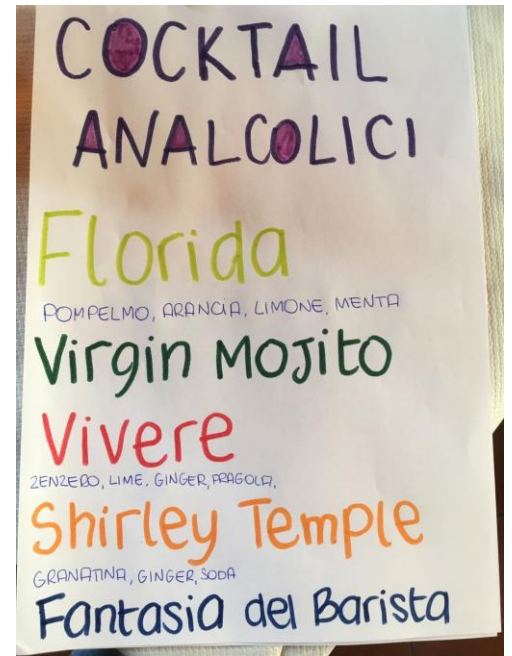 COCKTAIL
ANALCOLICI
Florida
POMPELMO, ARANCIA, LIMONE, MENTA
Virgin Mojito
Vivere
ZENZERO, LIME, GINGER, FRAGOLA.
Shirley Temple
GRANATINA, GINGER, SODA
Fantasia del Barista